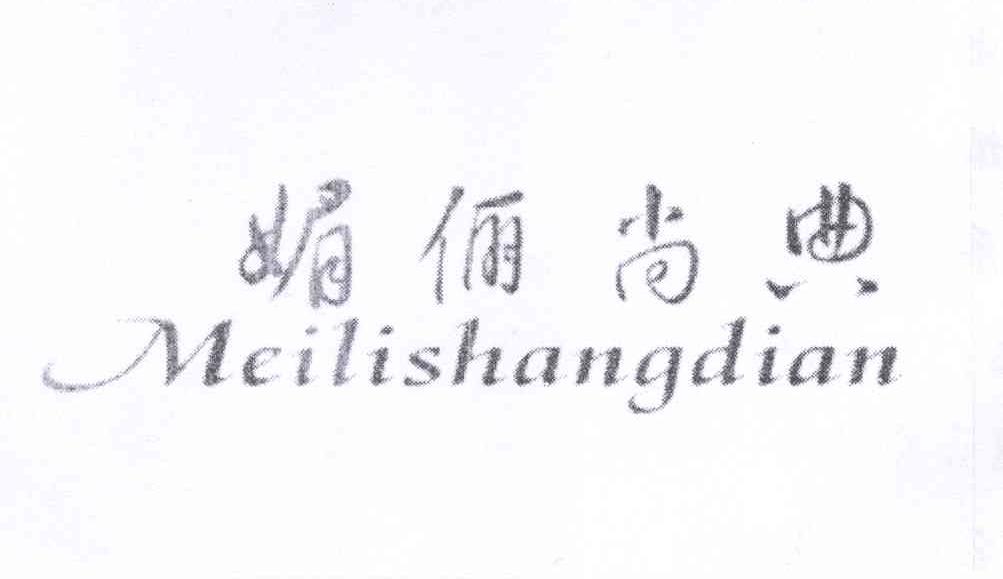 媚俪尚典
Meilishangdian